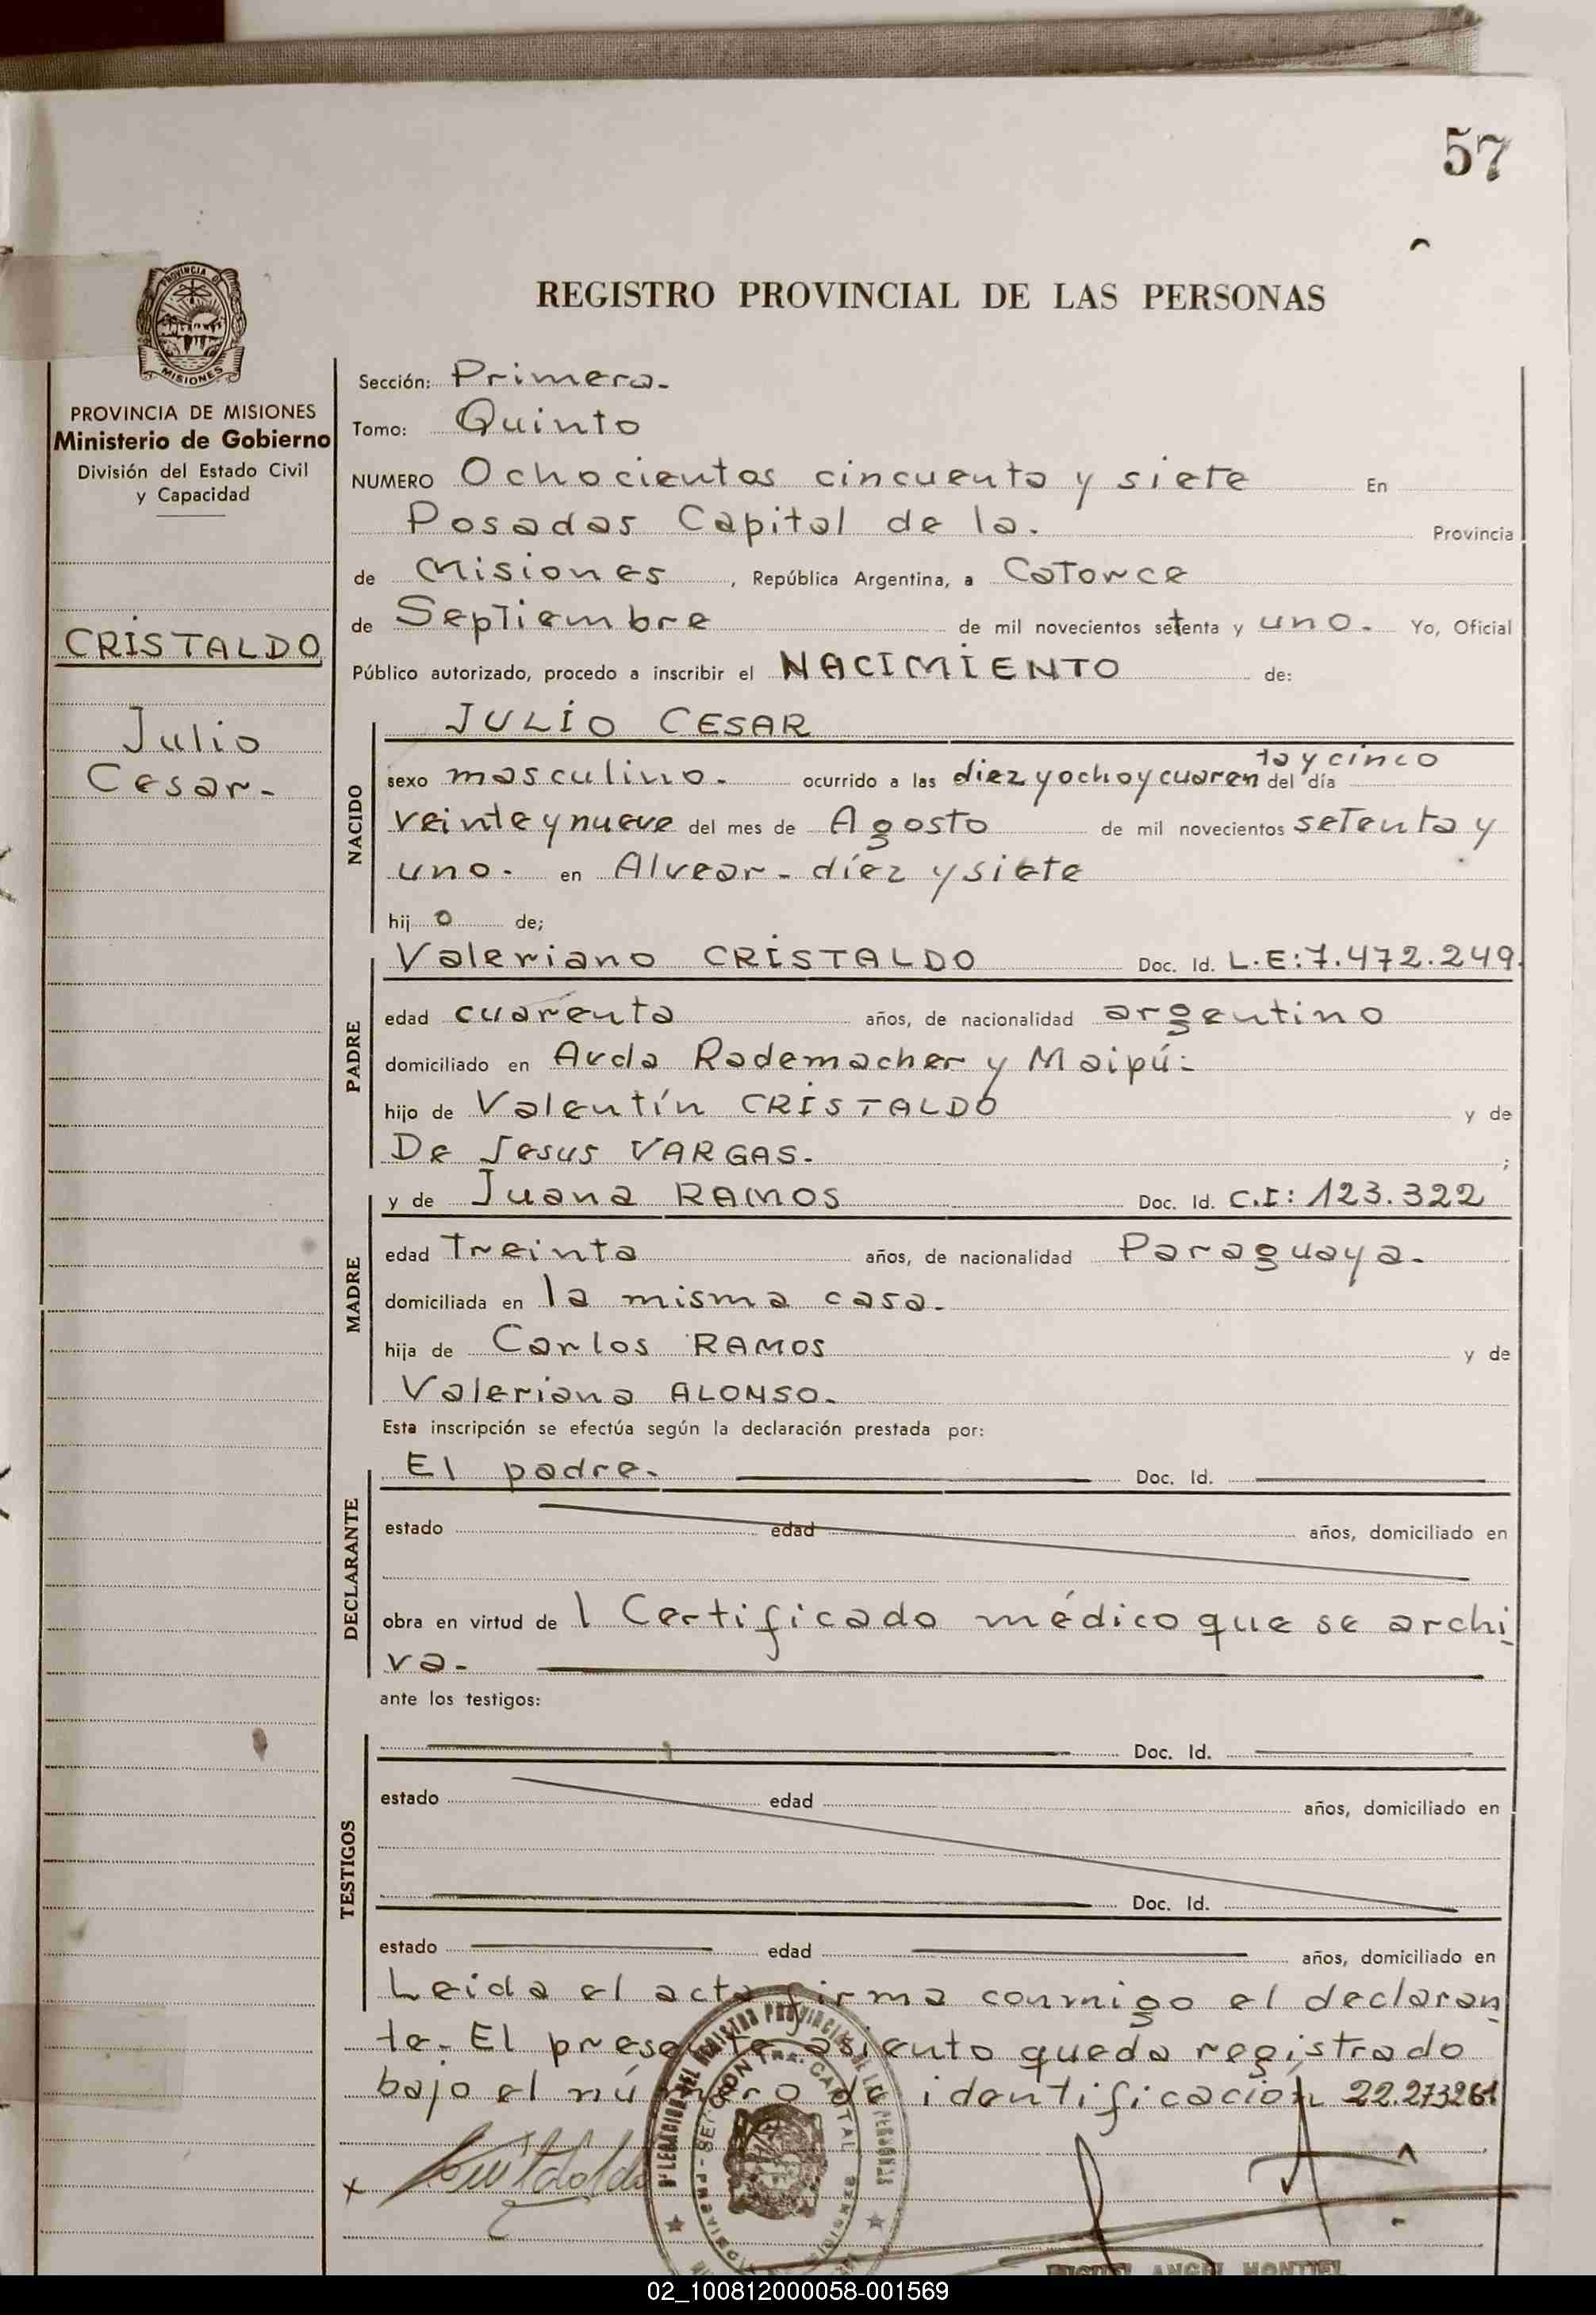 57
REGISTRO PROVINCIAL DE LAS PERSONAS
PROVINCIA DE MISIONES
Ministerio de Gobierno
División del Estado Civil
y Capacidad
CRISTALDO
Julio
Cesar-
Sección: Primera-
Tomo: Quinto
NUMERO Ochocientos cincuenta y siete En
Posadas Capital de la. Provincia
de Misiones, República Argentina, a Catorce
de Septiembre de mil novecientos setenta y uno. Yo, Oficial
Público autorizado, procedo a inscribir el NACIMIENTO de:
JULIO CESAR
ta y cinco
NACIDO
sexo masculino. ocurrido a las diez y ocho y cuaren del día
veinte y nueve del mes de Agosto de mil novecientos setenta y
uno. en Alvear - diez y siete
hij o de;
PADRE
Valeriano CRISTALDO Doc. Id. L.E:7.472.249.
edad cuarenta años, de nacionalidad argentino
domiciliado en Avda Rademacher y Maipú-
hijo de Valentín CRISTALDO y de
De Jesus VARGAS. ;
MADRE
y de Juana RAMOS Doc. Id. C.I: 123.322
edad Treinta años, de nacionalidad Paraguaya.
domiciliada en la misma casa.
hija de Carlos RAMOS y de
Valeriana ALONSO.
Esta inscripción se efectúa según la declaración prestada por:
DECLARANTE
El padre. Doc. Id.
estado edad años, domiciliado en
obra en virtud de 1 Certificado médico que se archi
va-
ante los testigos:
TESTIGOS
Doc. Id.
estado edad años, domiciliado en
Doc. Id.
estado edad años, domiciliado en
Leida el acta firma conmigo el declaran
te. El presente asiento queda registrado
bajo el número de identificación 22.273261
Cristaldo
MIGUEL ANGEL MONTIEL
02_100812000058-001569